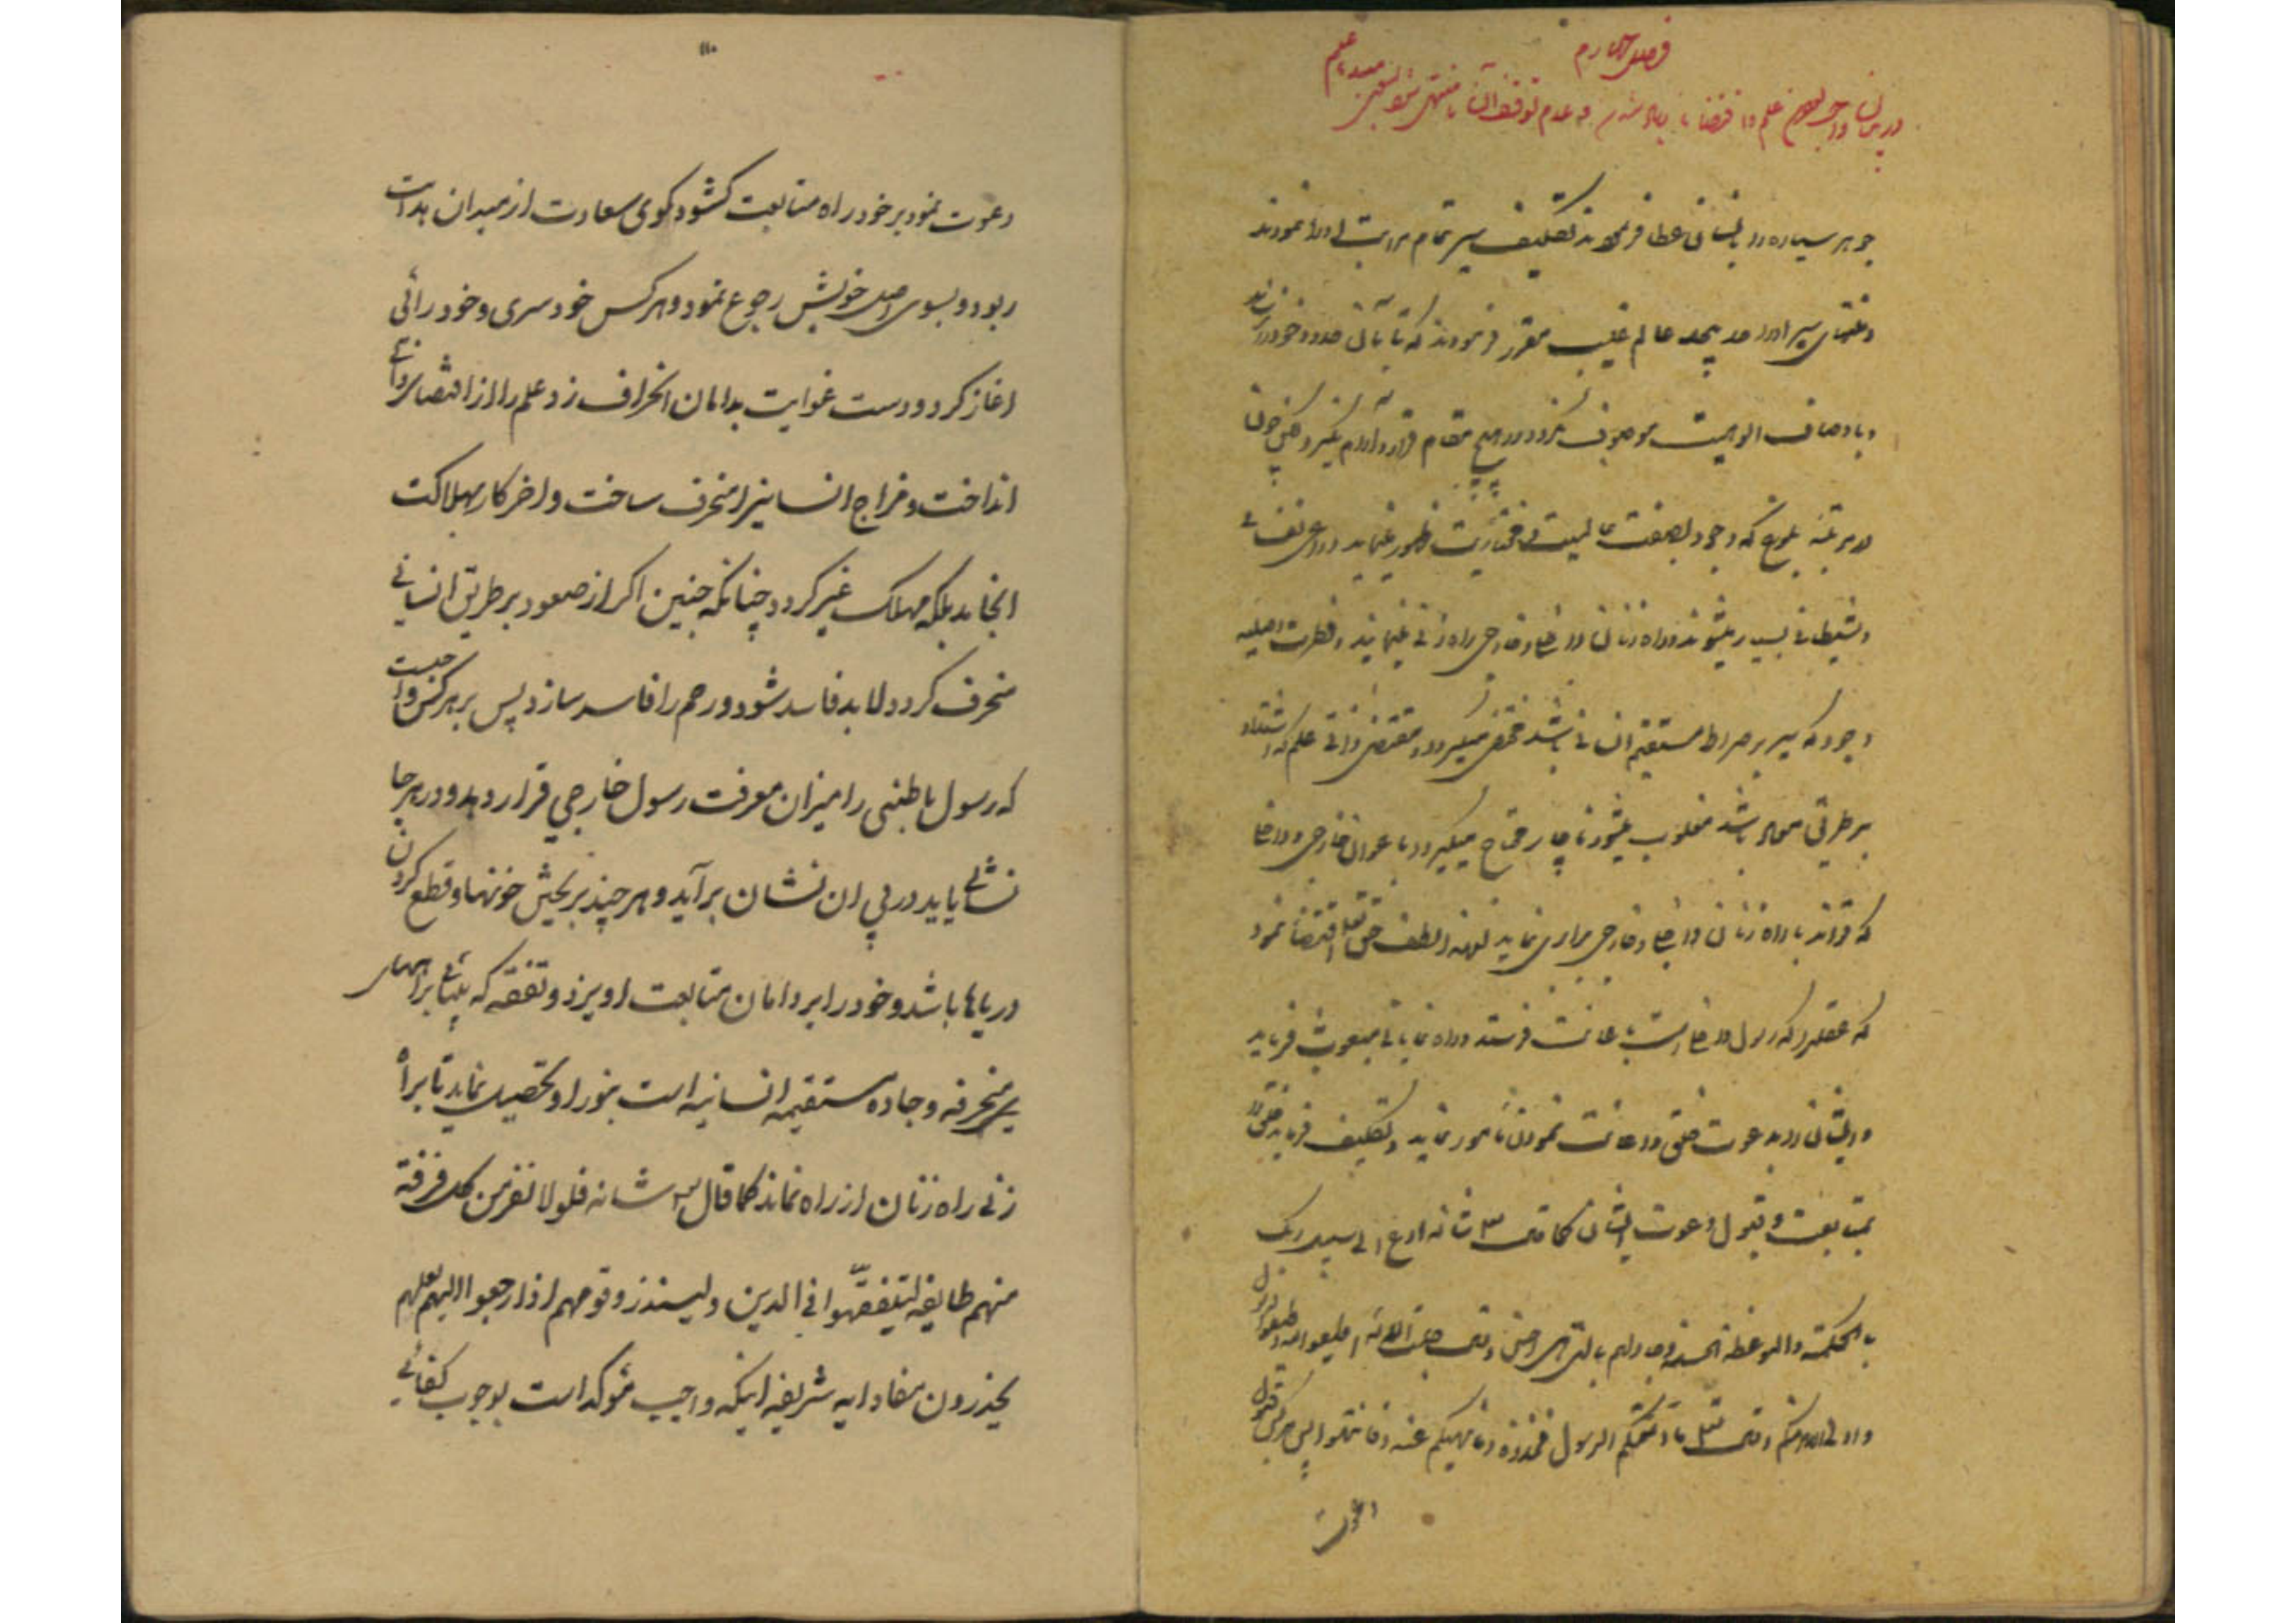 فصل چهارم
در بیان واجب بودن علم و اقتضاء زیاد شدن و عدم توقف آن تا منتهی شود بسوی مبدء علم
جوهر سیاره را بایشان عطا فرمودند تکلیف سیر تمام مراتب او را نمودند
و منتهای سیر او را حد بیحد عالم غیب مقرر فرمودند که تا بآن حدود خود را نرساند
و باوصاف الوهیت موصوف نگردد در هیچ مقام قرار و آرام نگیرد لکن چون
در مرتبه بلوغ که وجود بصفت عالمیت و مختاریت ظهور مینماید دواعی نفسانی
و شیطانی بسیار میشوند و راه زنان داخلی و خارجی راه زنی مینمایند و فطرت اصلیه
وجود که سیر بر صراط مستقیم انسانی باشد مختفی میگردد و مقتضی ذاتی علم که اشتداد
بر طریق معاد باشد مغلوب میشود ناچار محتاج میگردد باعوان خارجی و داخلی
که تواند با راه زنان داخلی و خارجی برابری نماید لهذا لطف حق تعالی اقتضا نمود
که عقل را که رسول داخلی است باعانت فرستد و راه نمایانی مبعوث فرماید
و ایشان را بدعوت خلق و اعانت نمودن مامور نماید و تکلیف فرماید خلق را
بمتابعت و قبول دعوت ایشان کما قال تعالی شانه ادع الی سبیل ربک
بالحکمة والموعظة الحسنة وجادلهم بالتی هی احسن و قال اطیعوا الله واطیعوا الرسول
واولی الامر منکم و قال تعالی ما آتیکم الرسول فخذوه وما نهیکم عنه فانتهوا پس هر کس قبول
دعوت
۱۱۰
دعوت نمود بر خود راه متابعت کشود کوی سعادت از میدان هدایت
ربود و بسوی اصل خویش رجوع نمود و هر کس خودسری و خودرائی
اغاز کرد و دست غوایت بدامان انحراف زد علم را از اقتضای ذاتی
انداخت و مزاج انسانیرا منحرف ساخت و اخر کار بهلاکت
انجامد بلکه مهلک غیر کردد چنانکه جنین اکر از صعود بر طریق انسانی
منحرف کردد لابد فاسد شود و رحم را فاسد سازد پس بر هر کس واجبست
که رسول باطنی را میزان معرفت رسول خارجی قرار دهد و در هر جا
نشانی یابد در پی ان نشان برآید و هر چند بریختن خونها و قطع کردن
دریاها باشد و خود را بر دامان متابعت او بزند و تفقه که بینائی براههای
منحرفه و جاده مستقیمه انسانیه است بنور او تحصیل نماید تا براه
زنی راه زنان از راه نماند کما قال تعالی شانه فلولا نفر من کل فرقة
منهم طایفة لیتفقّهوا فی الدین ولینذروا قومهم اذا رجعوا الیهم لعلهم
یحذرون مفاد ایه شریفه اینکه واجب مؤکد است بوجوب کفائی